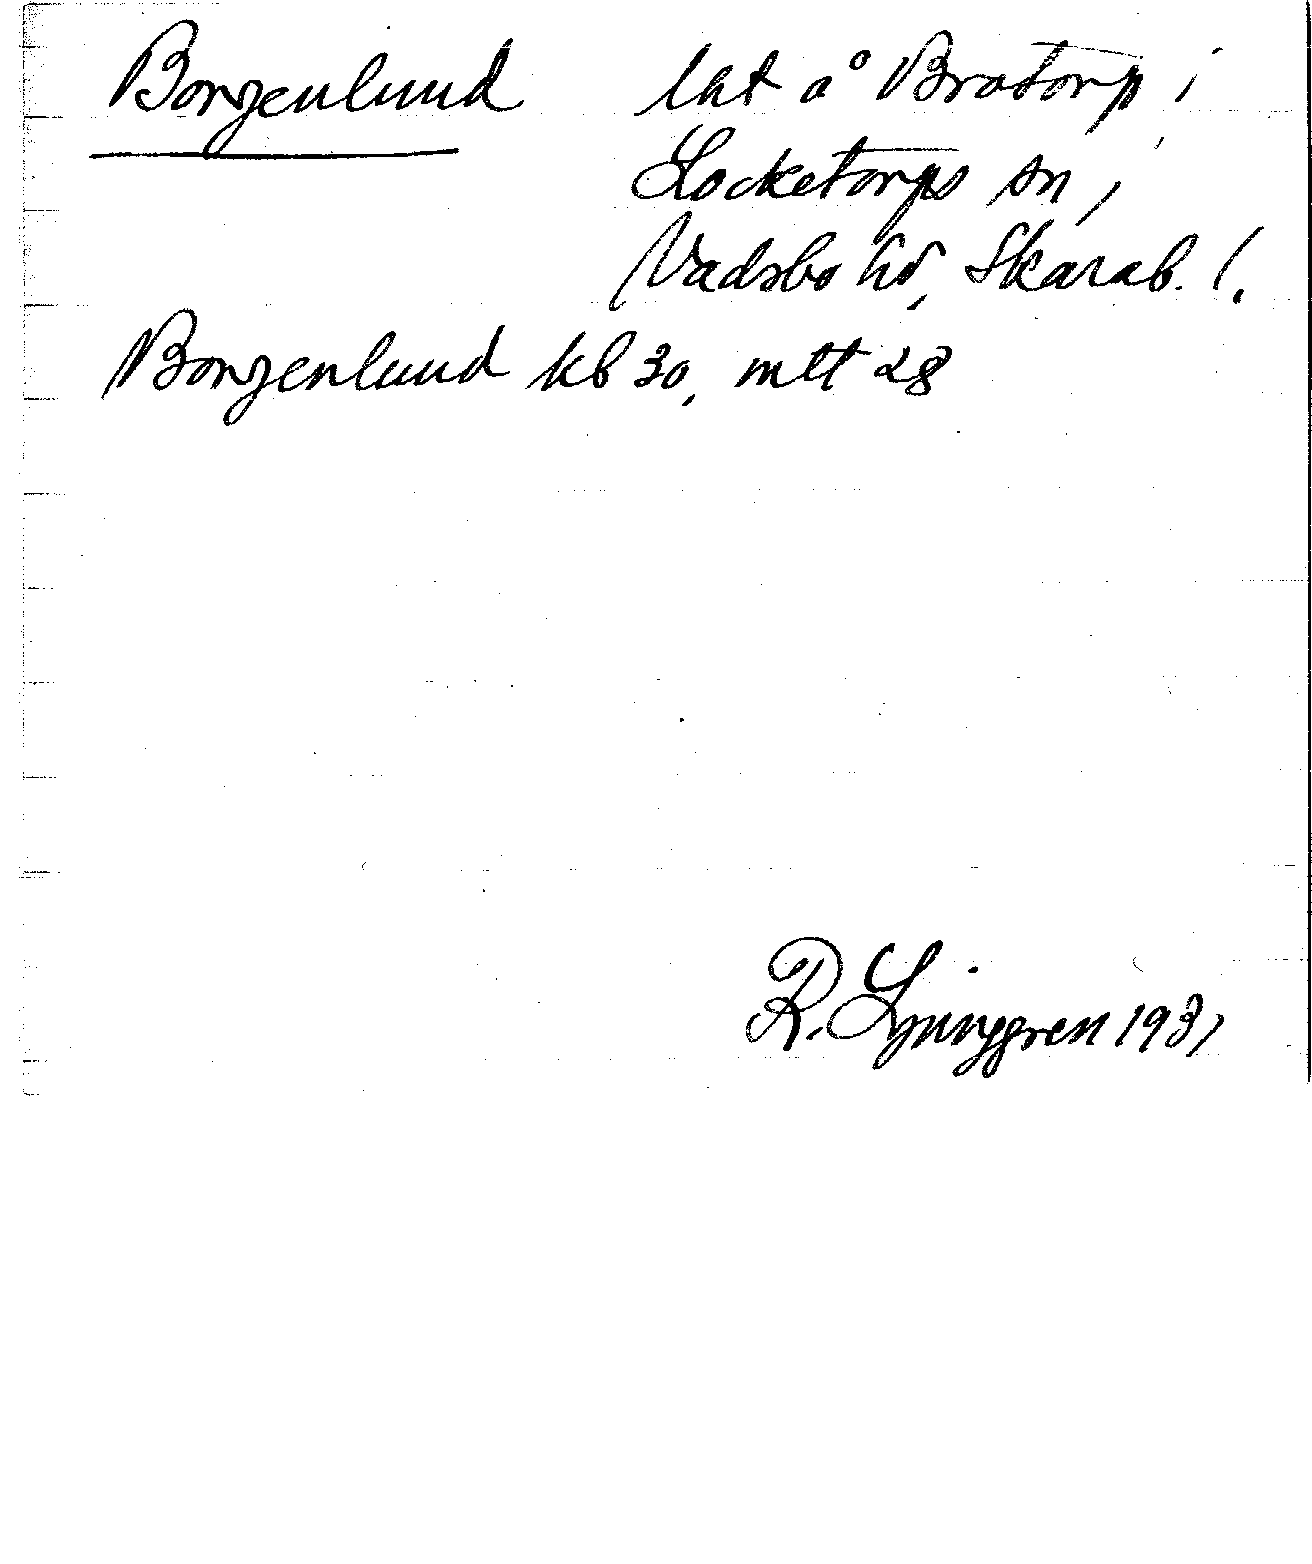 Borgenlund lht å Bratorp i
Locketorps sn,
Vadsbo hd, Skarab. l.
Borgenlund kb 30, mtt 28
R. Ljunggren 1931